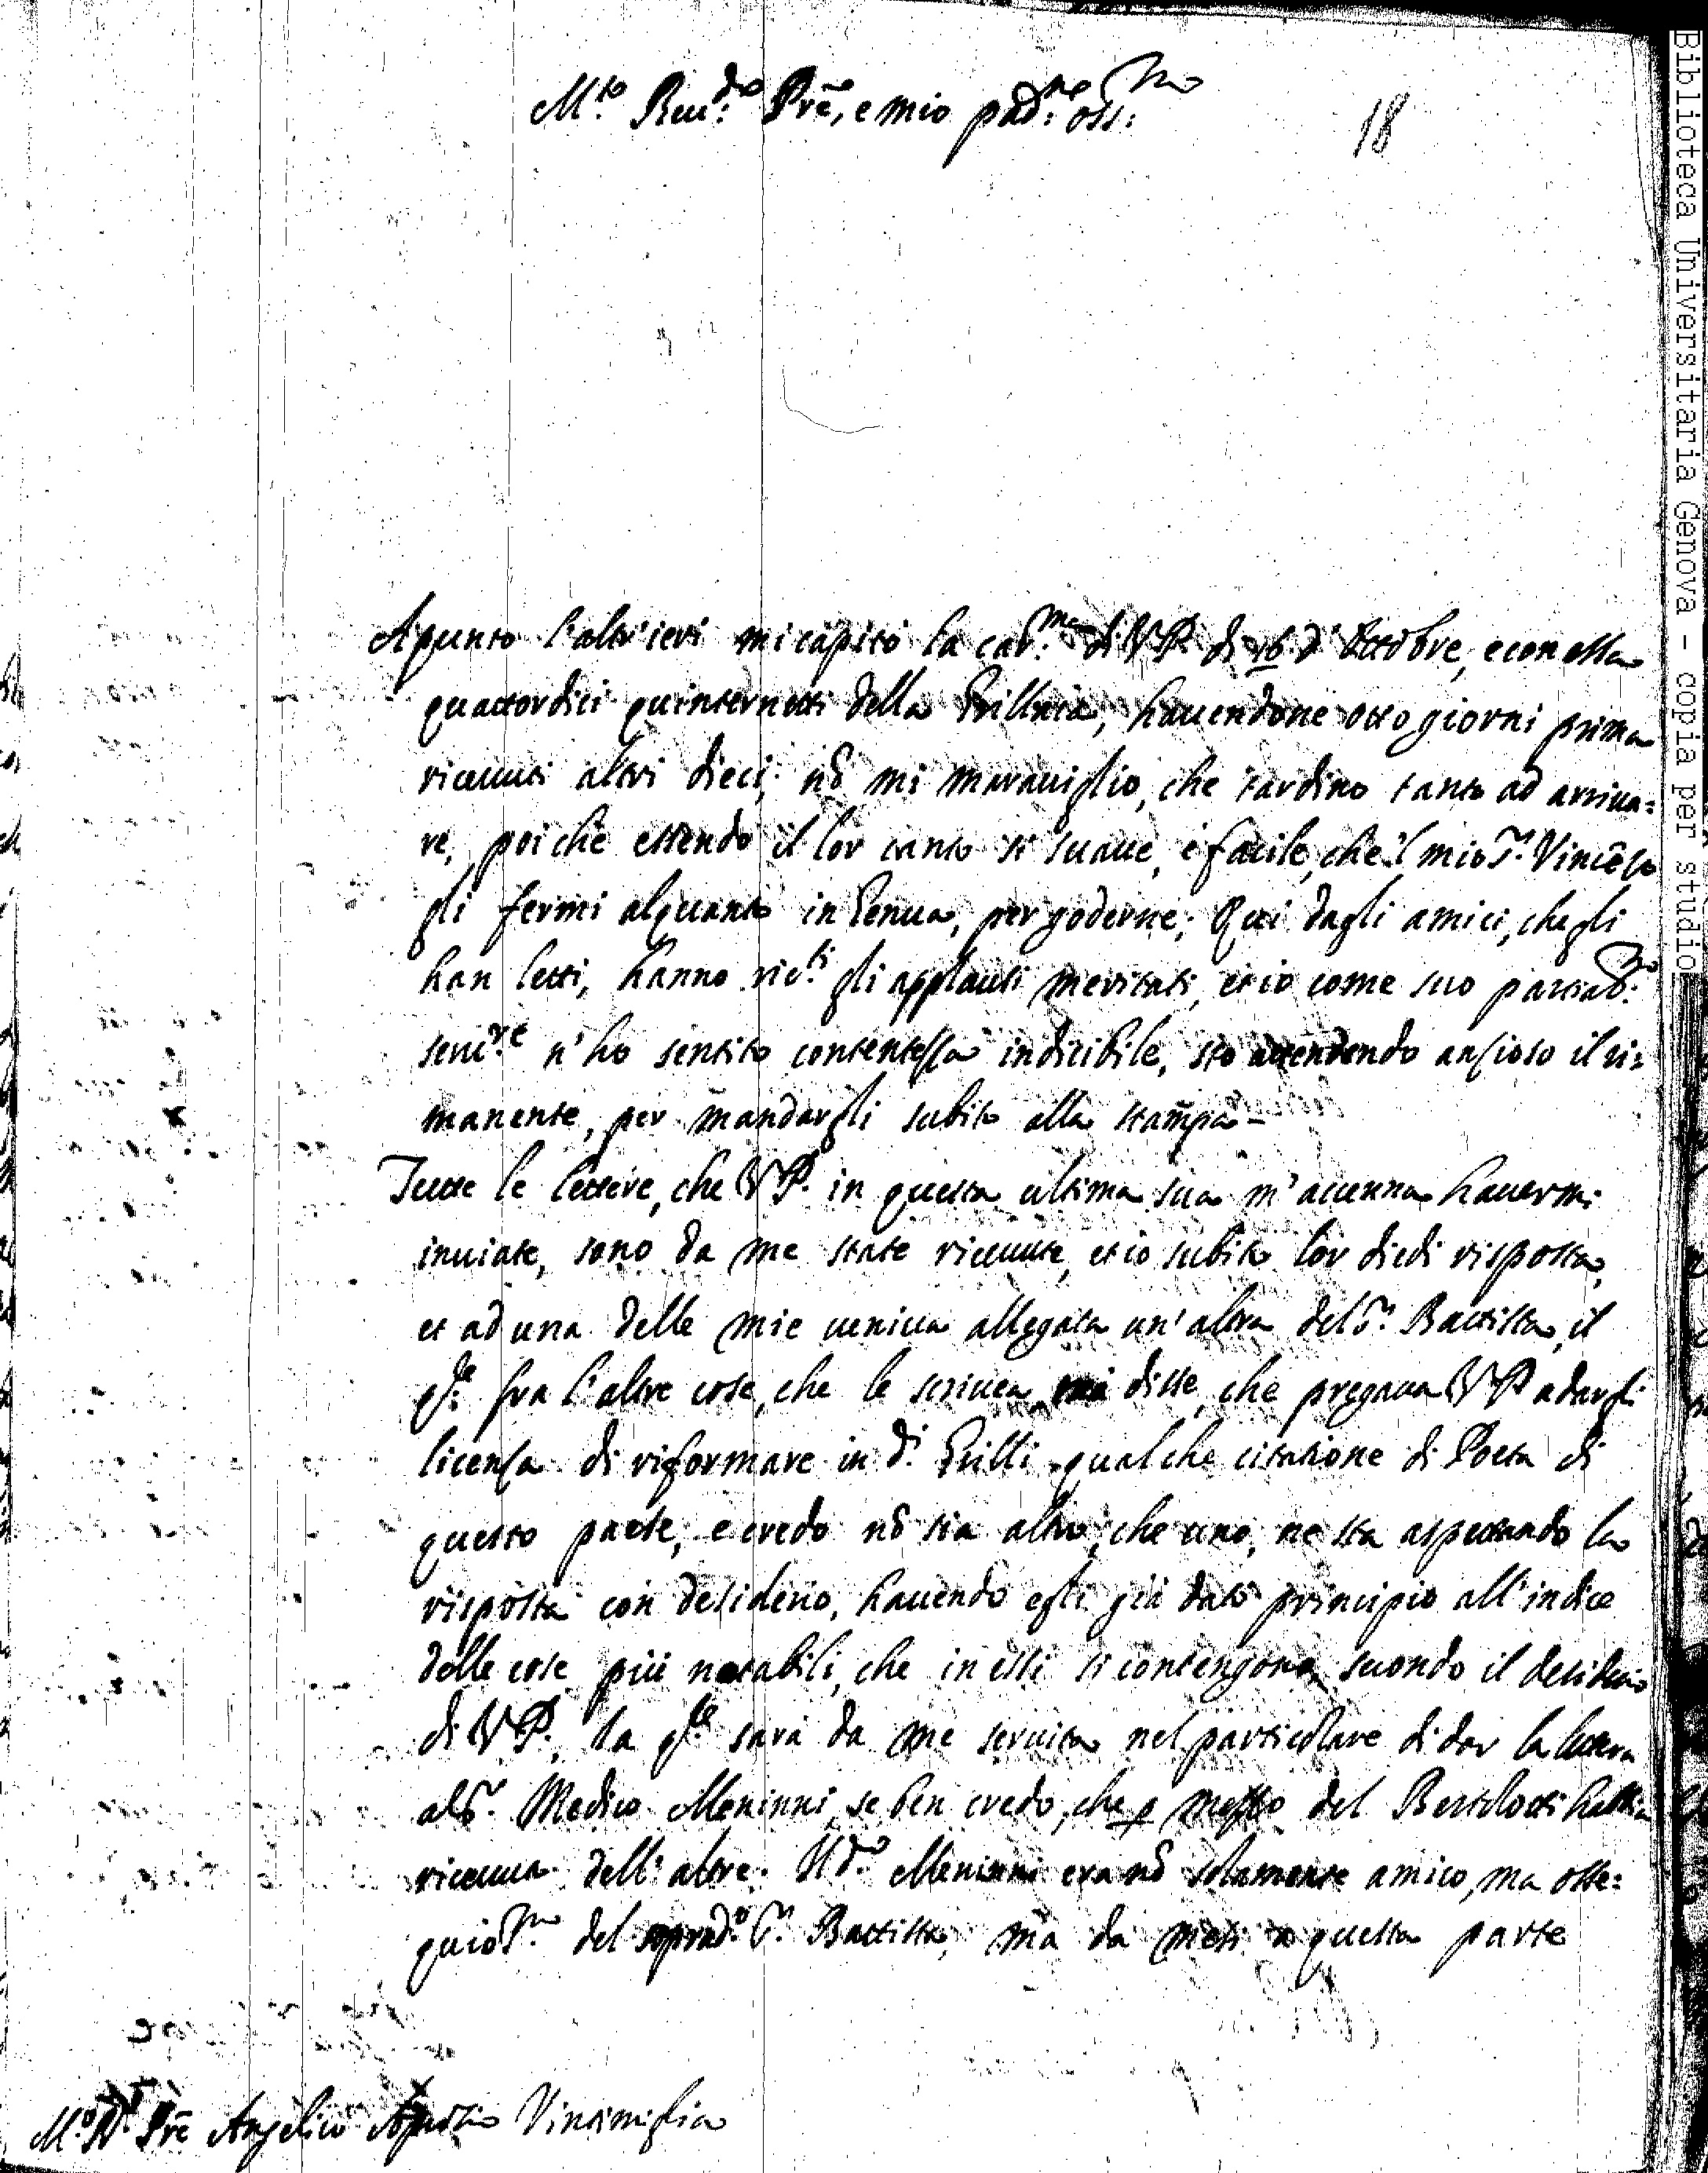 M.to Reu.do Prē, e mio pad.ne oss.mo
18
Apunto l'altr'ieri mi capitò la car.ma di V.P. di 16 d'Ottobre, e con essa
quattordici quinternetti della Grillaia, hauendone otto giorni prima
riceuuti altri dieci; nō mi marauiglio, che tardino tanto ad arriua=
re, poi che essendo il lor canto sì suaue, è facile, che 'l mio Sr. Vincēzo
gli fermi alquanto in Genua, per goderne; Qui dagli amici, che gli
han letti, hanno ric.ti gli applausi meritati, et io come suo parziar.mo
seru.re n'ho sentito contentezza indicibile, sto attendendo ansioso il ri=
manente, per mandargli subito alla stampa-
Tutte le lettere, che V.P. in questa ultima sua m'accenna hauermi
inuiate, sono da me state riceuute, et io subito lor diedi risposta,
et ad una delle mie ueniua allegata un'altra del Sr. Battista, il
q.le fra l'altre cose, che le scriuea, mi disse, che pregaua V.P. a dargli
licenza di riformare in d.i Grilli qualche citatione di Poeta di
questo paese, e credo nō sia altro, che uno, ne sta aspettando la
risposta con desiderio, hauendo egli già dato principio all'indice
delle cose più notabili, che in essi si contengono, secondo il desiderio
di V.P., la q.le sarà da me seruita nel particolare di dar la lettera
al Sr. Medico Meninni, se ben credo, che p mezzo del Bertilotti habbia
riceuua dell'altre. Il d.o Meninni era nō solamente amico, ma osse=
quios.mo del soprad.o Sr. Battista, ma da mesi a questa parte
M.o R.do Prē Angelico Aprosio Vintimiglia
Biblioteca Universitaria Genova - copia per studio